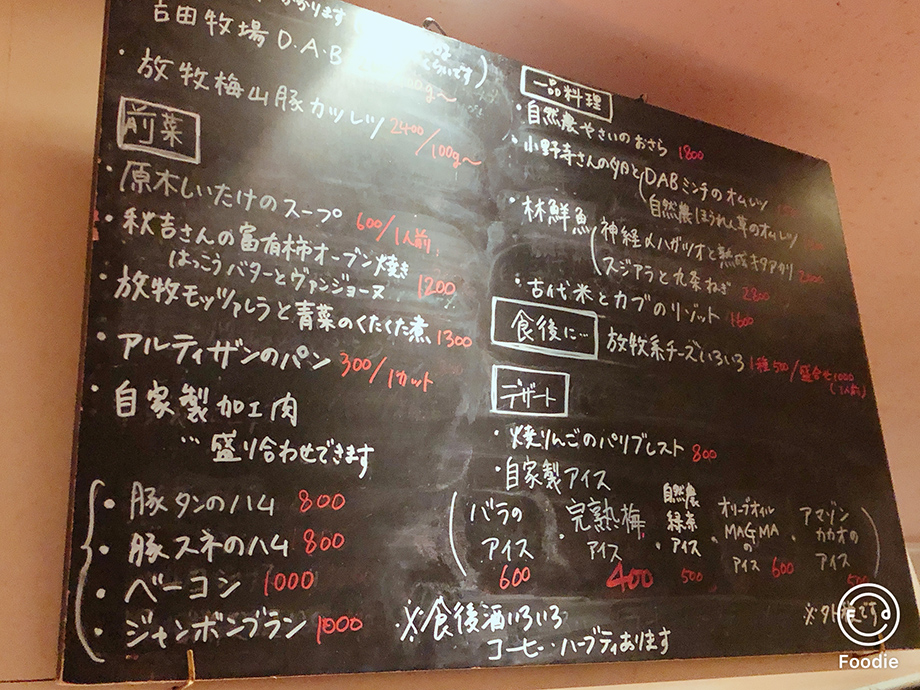 かかります
吉田牧場 D.A.B
くらいです)
・放牧梅山豚カツレツ 2400/100g〜
前菜
・原木しいたけのスープ 600/1人前
・秋吉さんの富有柿オーブン焼き
はっこうバターとヴァンジョーヌ 1200
・放牧モッツァレラと青菜のくたくた煮 1300
・アルティザンのパン 300/1カット
・自家製加工肉
…盛り合わせできます
・豚タンのハム 800
・豚スネのハム 800
・ベーコン 1000
・ジャンボンブラン 1000
一品料理
・自然農やさいのおさら 1800
・小野寺さんの卵と(DABミンチのオムレツ
自然農ほうれん草のオムレツ
・林鮮魚(神経〆ハガツオと熟成キタアカリ
スジアラと九条ねぎ 2800
・古代米とカブのリゾット 1600
食後に…
放牧系チーズいろいろ 1種500/盛合せ1000
(1人前)
デザート
・焼りんごのパリブレスト 800
・自家製アイス
(バラのアイス 600
・完熟梅アイス 400
・自然農緑茶アイス 500
・オリーブオイルMAGMAのアイス 600
・アマゾンカカオのアイス)
※食後酒いろいろ
コーヒー・ハーブティあります
※外税です
Foodie